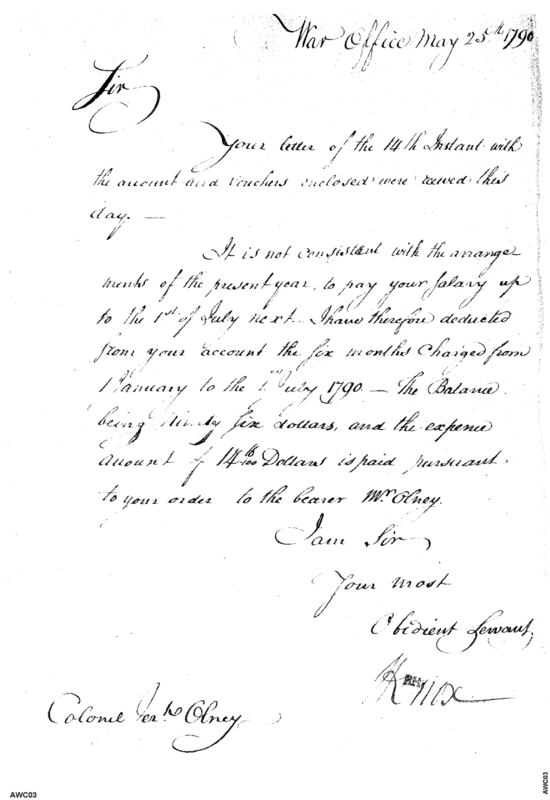 War Office May 25th 1790
Sir
Your letter of the 14th Instant with
the amount and vouchers enclosed were receved this
day. —
It is not consistent with the arrange
ments of the present year, to pay your Salary up
to the 1st of July next. I have therefore deducted
from your account the six months Charged from
1 January to the 1st July 1790 — The Balance
being Ninety Six dollars, and the expence
amount of 14 /100 Dollars is paid pursuant
to your order to the bearer Mr Olney.
I am Sir
Your most
Obidient Servant,
HKnox
Colonel Olney
AWC03
AWC03